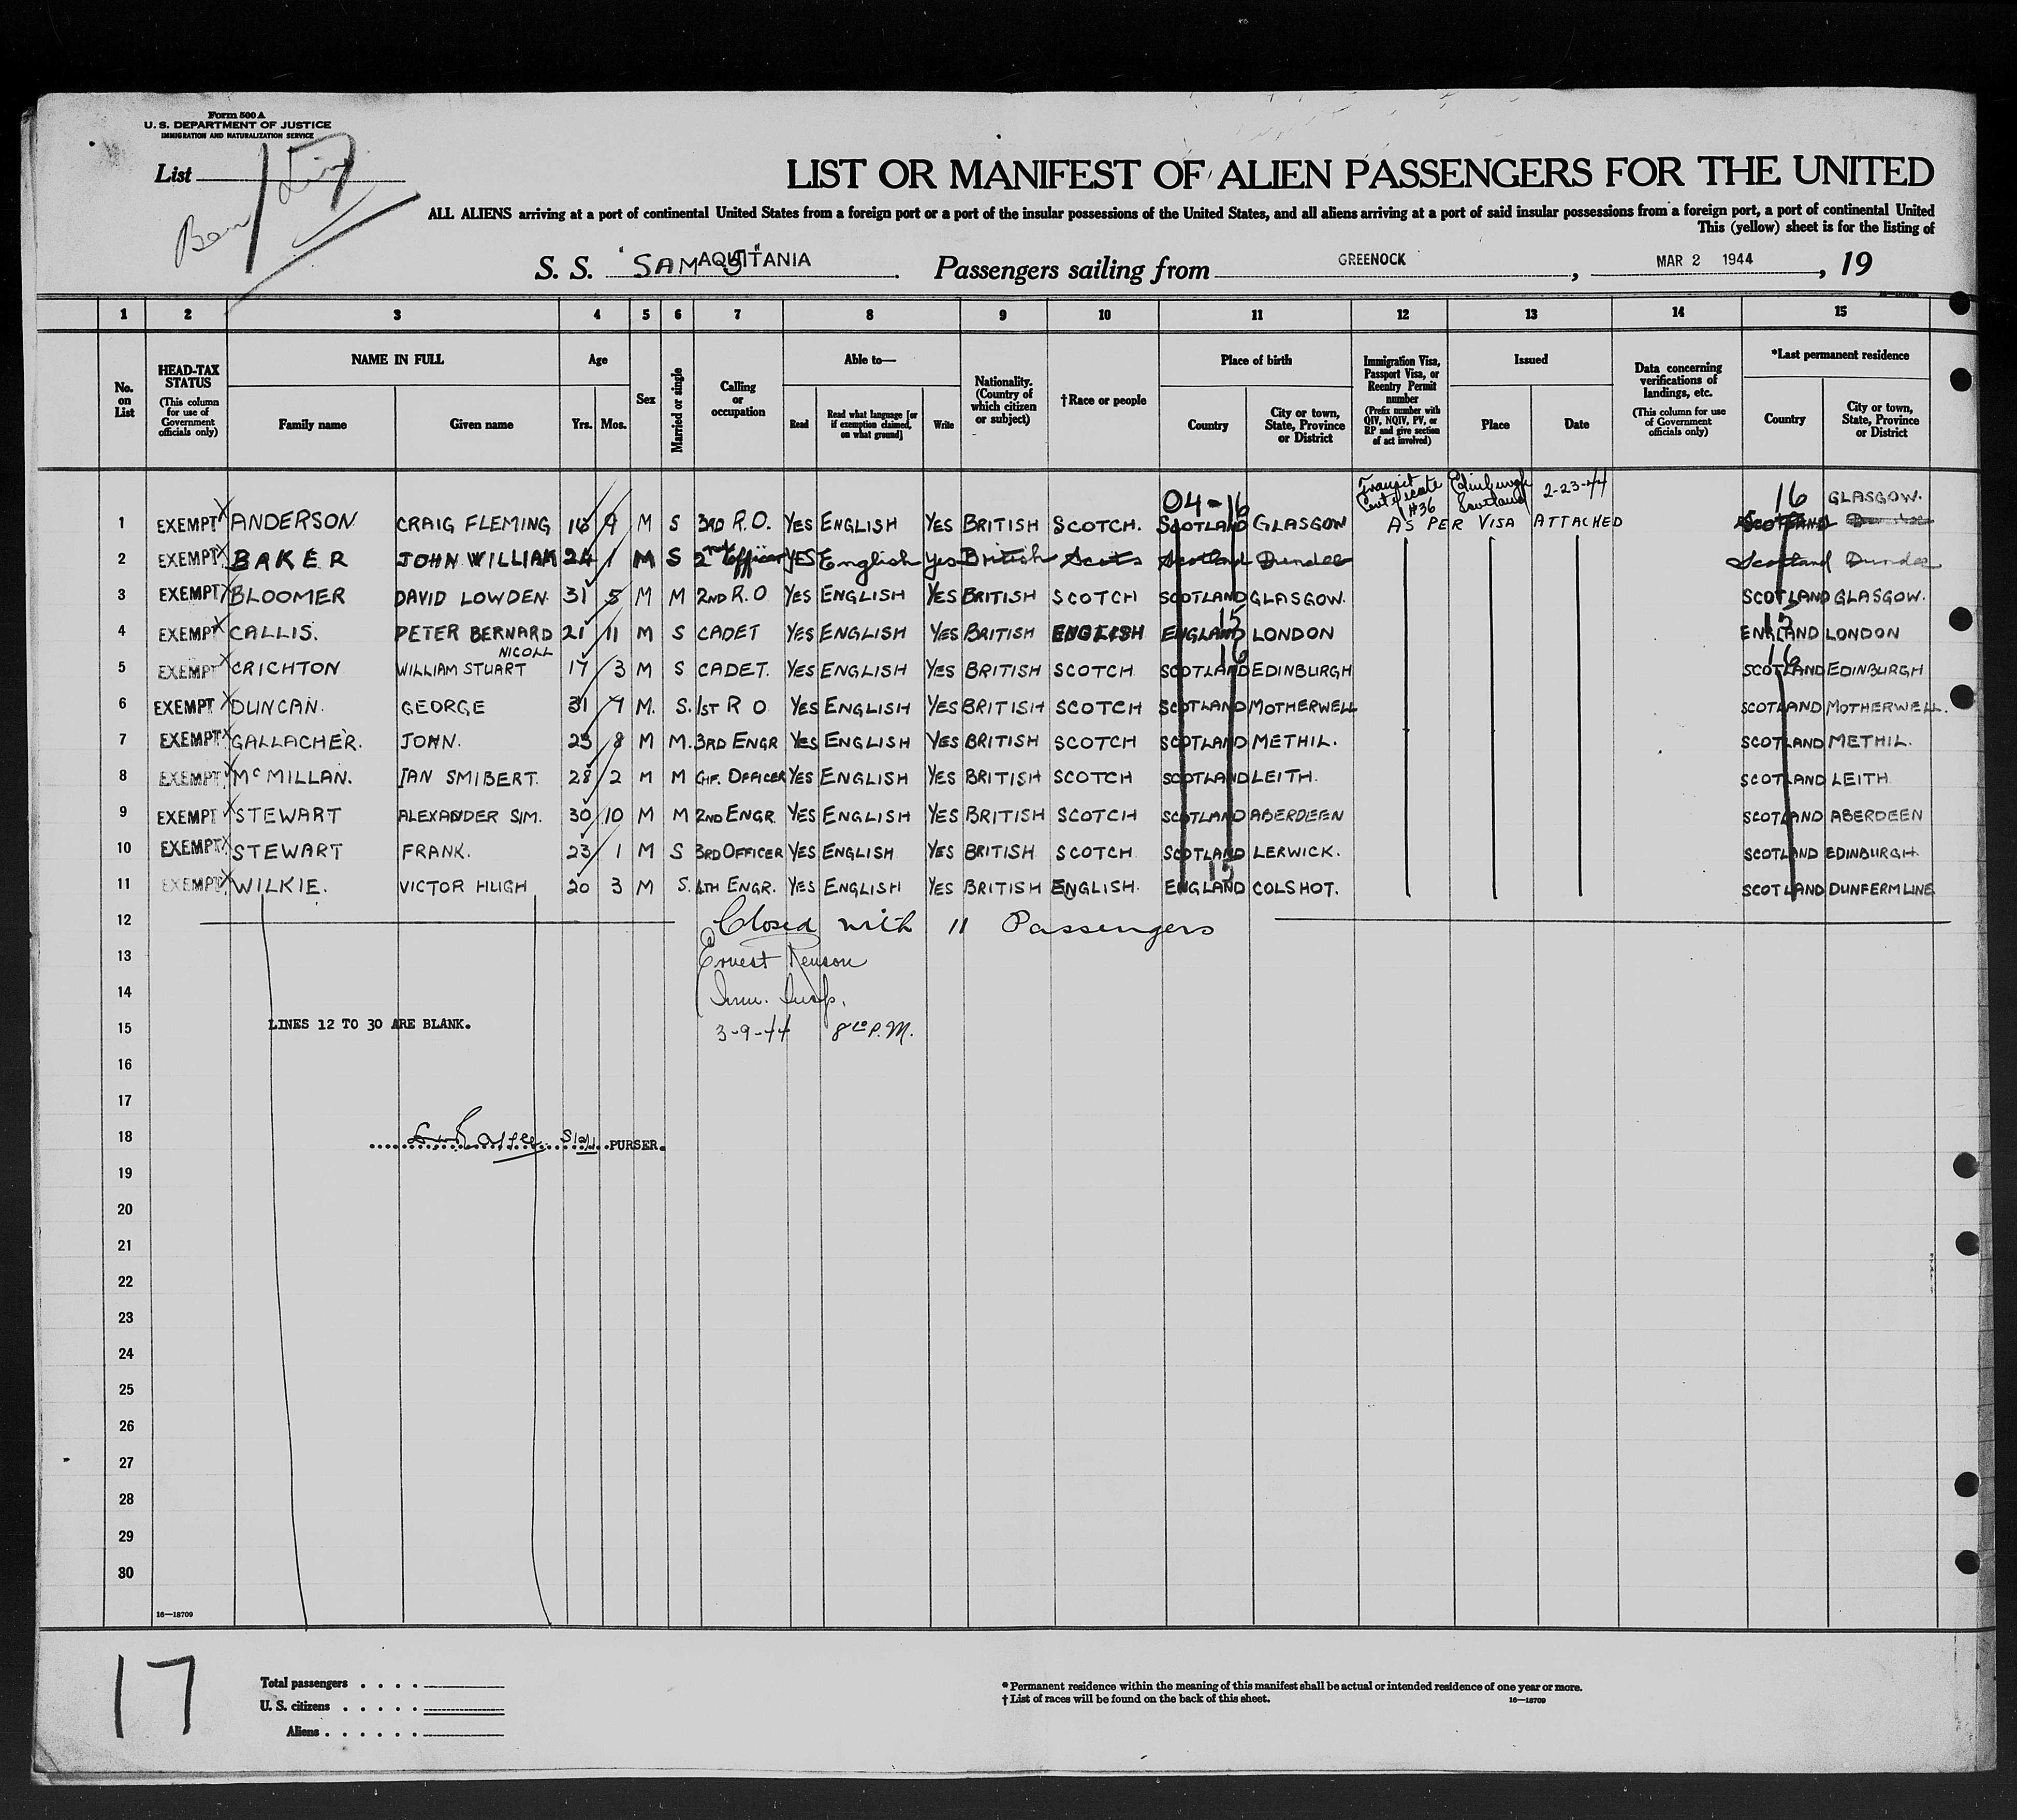 Form 500 A
U. S. DEPARTMENT OF JUSTICE
IMMIGRATION AND NATURALIZATION SERVICE
List 17
LIST OR MANIFEST OF ALIEN PASSENGERS FOR THE UNITED
ALL ALIENS arriving at a port of continental United States from a foreign port or a port of the insular possessions of the United States, and all aliens arriving at a port of said insular possessions from a foreign port, a port of continental United
This (yellow) sheet is for the listing of
S. S. "SAM AQUITANIA Passengers sailing from GREENOCK, MAR 2 1944, 19
16—18709
1 2 3 4 5 6 7 8 9 10 11 12 13 14 15
No. on List
HEAD-TAX STATUS (This column for use of Government officials only)
NAME IN FULL Family name Given name
Age Yrs. Mos.
Sex
Married or single
Calling or occupation
Able to— Read Read what language [or if exemption claimed, on what ground] Write
Nationality. (Country of which citizen or subject)
†Race or people
Place of birth Country City or town, State, Province or District
Immigration Visa, Passport Visa, or Reentry Permit number (Prefix number with QIV, NQIV, PV, or RP and give section of act involved)
Issued Place Date
Data concerning verifications of landings, etc. (This column for use of Government officials only)
*Last permanent residence Country City or town, State, Province or District
04-16 Transit Certificate #36 Edinburgh Scotland 2-23-44 16 GLASGOW.
1 EXEMPT ANDERSON CRAIG FLEMING 9 M S 3RD R.O. YES ENGLISH YES BRITISH SCOTCH. SCOTLAND GLASGOW AS PER VISA ATTACHED SCOTLAND Dundee
2 EXEMPT BAKER JOHN WILLIAM 24 1 M S 2nd Officer YES English Yes British Scots Scotland Dundee Scotland Dundee
3 EXEMPT BLOOMER DAVID LOWDEN. 31 5 M M 2ND R.O YES ENGLISH YES BRITISH SCOTCH SCOTLAND GLASGOW. SCOTLAND GLASGOW.
15 15
4 EXEMPT CALLIS. PETER BERNARD 21 11 M S CADET YES ENGLISH YES BRITISH ENGLISH ENGLAND LONDON ENGLAND LONDON
NICOLL 16 16
5 EXEMPT CRICHTON WILLIAM STUART 17 3 M S CADET. YES ENGLISH YES BRITISH SCOTCH SCOTLAND EDINBURGH SCOTLAND EDINBURGH
6 EXEMPT DUNCAN. GEORGE 31 9 M. S. 1ST R O YES ENGLISH YES BRITISH SCOTCH SCOTLAND MOTHERWELL SCOTLAND MOTHERWELL.
7 EXEMPT GALLACHER. JOHN. 25 8 M M. 3RD ENGR YES ENGLISH YES BRITISH SCOTCH SCOTLAND METHIL. SCOTLAND METHIL.
8 EXEMPT McMILLAN. IAN SMIBERT. 28 2 M M CHF. OFFICER YES ENGLISH YES BRITISH SCOTCH SCOTLAND LEITH. SCOTLAND LEITH
9 EXEMPT STEWART ALEXANDER SIM. 30 10 M M 2ND ENGR. YES ENGLISH YES BRITISH SCOTCH SCOTLAND ABERDEEN SCOTLAND ABERDEEN
10 EXEMPT STEWART FRANK. 23 1 M S 3RD OFFICER YES ENGLISH YES BRITISH SCOTCH SCOTLAND LERWICK. SCOTLAND EDINBURGH.
15
11 EXEMPT WILKIE. VICTOR HUGH 20 3 M S. 4TH ENGR. YES ENGLISH YES BRITISH ENGLISH. ENGLAND COLSHOT. SCOTLAND DUNFERMLINE
12 Closed with 11 Passengers
13 Ernest Renson
14 Imm. Insp.
15 LINES 12 TO 30 ARE BLANK. 3-9-44 8 P.M.
16
17
18 PURSER.
19
20
21
22
23
24
25
26
27
28
29
30
16—18709
17
Total passengers
U. S. citizens
Aliens
* Permanent residence within the meaning of this manifest shall be actual or intended residence of one year or more.
† List of races will be found on the back of this sheet. 16—18709